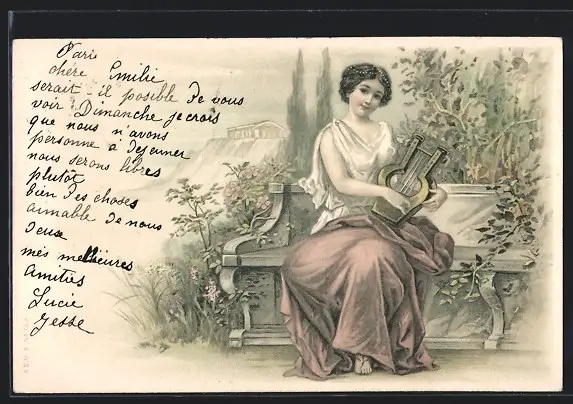 Paris
chére Emilie
serait-il posible de vous
voir Dimanche, je crois
que nous n'avons
personne a dejeuner
nous serons libres
plutôt
bien des choses
aimable de nous
deux
mes meilleures
Amitiés
Lucie
Jesse